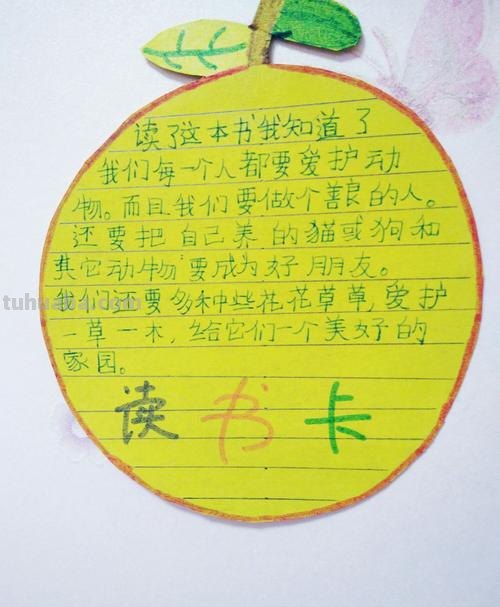 读了这本书我知道了
我们每一个人都要爱护动
物。而且我们要做个善良的人。
还要把自己养的猫或狗和
其它动物要成为好朋友。
我们还要多种些花花草草,爱护
一草一木,给它们一个美好的
家园。
读书卡